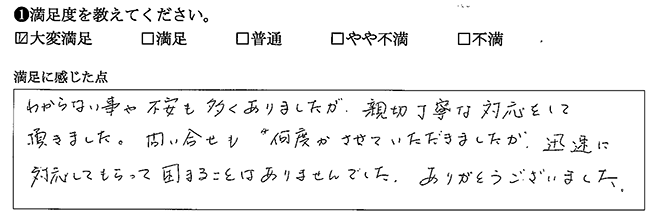 ❶満足度を教えてください。
☑大変満足 □満足 □普通 □やや不満 □不満
満足に感じた点
わからない事や不安も多くありましたが、親切丁寧な対応をして
頂きました。問い合せも何度かさせていただきましたが、迅速に
対応してもらって困まることはありませんでした。ありがとうございました。